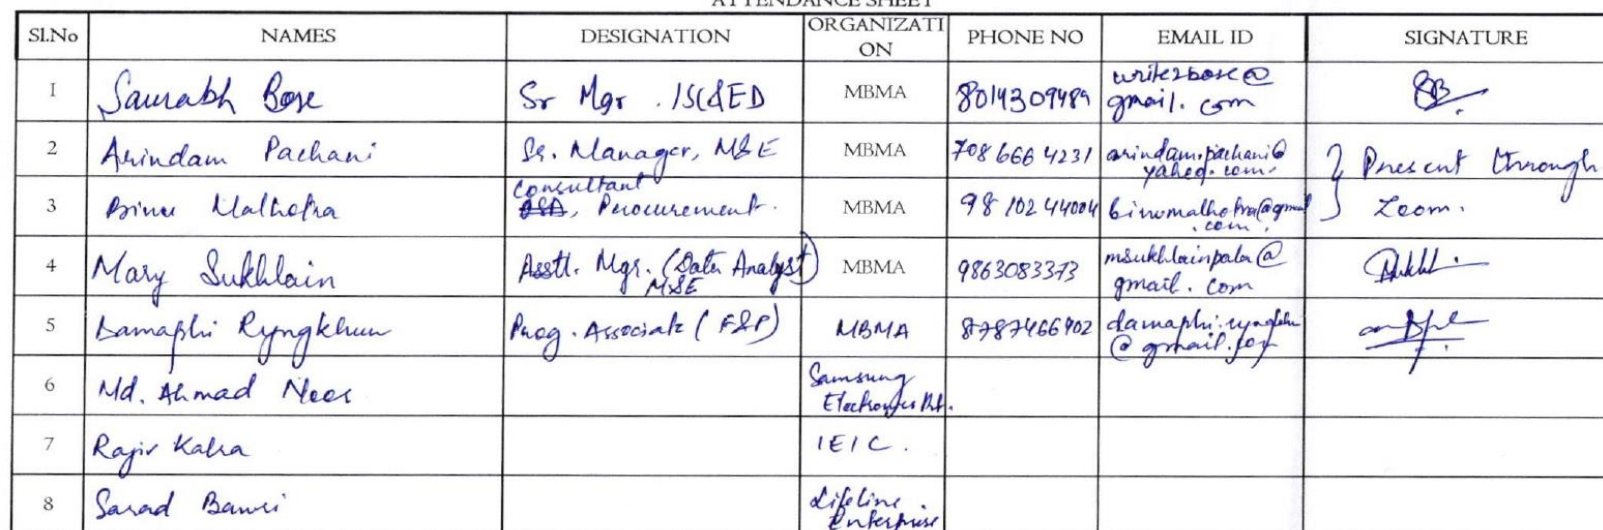 ATTENDANCE SHEET
Sl.No NAMES DESIGNATION ORGANIZATI
ON PHONE NO EMAIL ID SIGNATURE
1 Saurabh Bose Sr Mgr . ISC&ED MBMA 8014309489 writezbose@
gmail.com
2 Arindam Pachani Sr. Manager, M&E MBMA 708 666 4231 arindam.pachani@
yahoo.com. } Present through
Zoom.
3 Binu Malhotra Consultant
, Procurement. MBMA 98 102 44004 binumalhotra@gmail
.com.
4 Mary Sukhlain Asstt. Mgr. (Data Analyst)
M&E MBMA 9863083373 msukhlainpala@
gmail.com
5 Damaphi Ryngkhun Prog. Associate (F&P) MBMA 8787466902
@gmail.com
6 Md. Ahmad Noor Samsung
Electronics Pvt.
7 Rajiv Kalra IEIC.
8 Sarad Bawri Lifeline
Enterprise